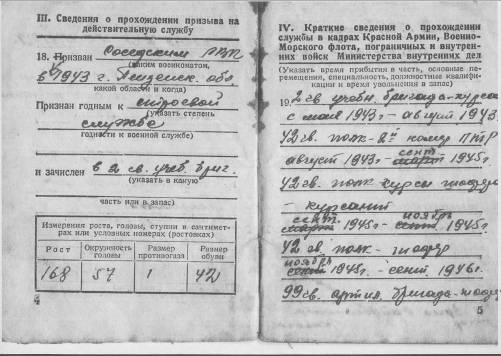 III. Сведения о прохождении призыва на
действительную службу
18. Призван Соседским РВК
(каким военкоматом,
в 1943 г. Пензенск. обл.
какой области и когда)
Признан годным к строевой
(указать степень
службе
годности к военной службе)
и зачислен в 2 св. учеб. бриг.
(указать в какую
часть или в запас)
Измерения роста, головы, ступни в сантимет-
рах или условных номерах (ростовках)
Рост Окружность головы Размер противогаза Размер обуви
168 57 1 42
4
IV. Краткие сведения о прохождении
службы в кадрах Красной Армии, Военно-
Морского флота, пограничных и внутрен-
них войск Министерства внутренних дел
(Указать время прибытия в часть, основные пе-
ремещения, специальность, должностные квалифи-
кации и время увольнения в запас)
19. 2 св. учебн. бригада - курсант
с мая 1943г - август 1943
42 св. полк - 2й номер ПТР
сент
август 1943г - март 1945г
42 св. полк курсы
- курсант
сент. ноябрь
март 1945г - сент 1945г
42 св. полк -
ноябрь
сент 1945г - сент. 1946г.
99 св. артил. бригада -
5